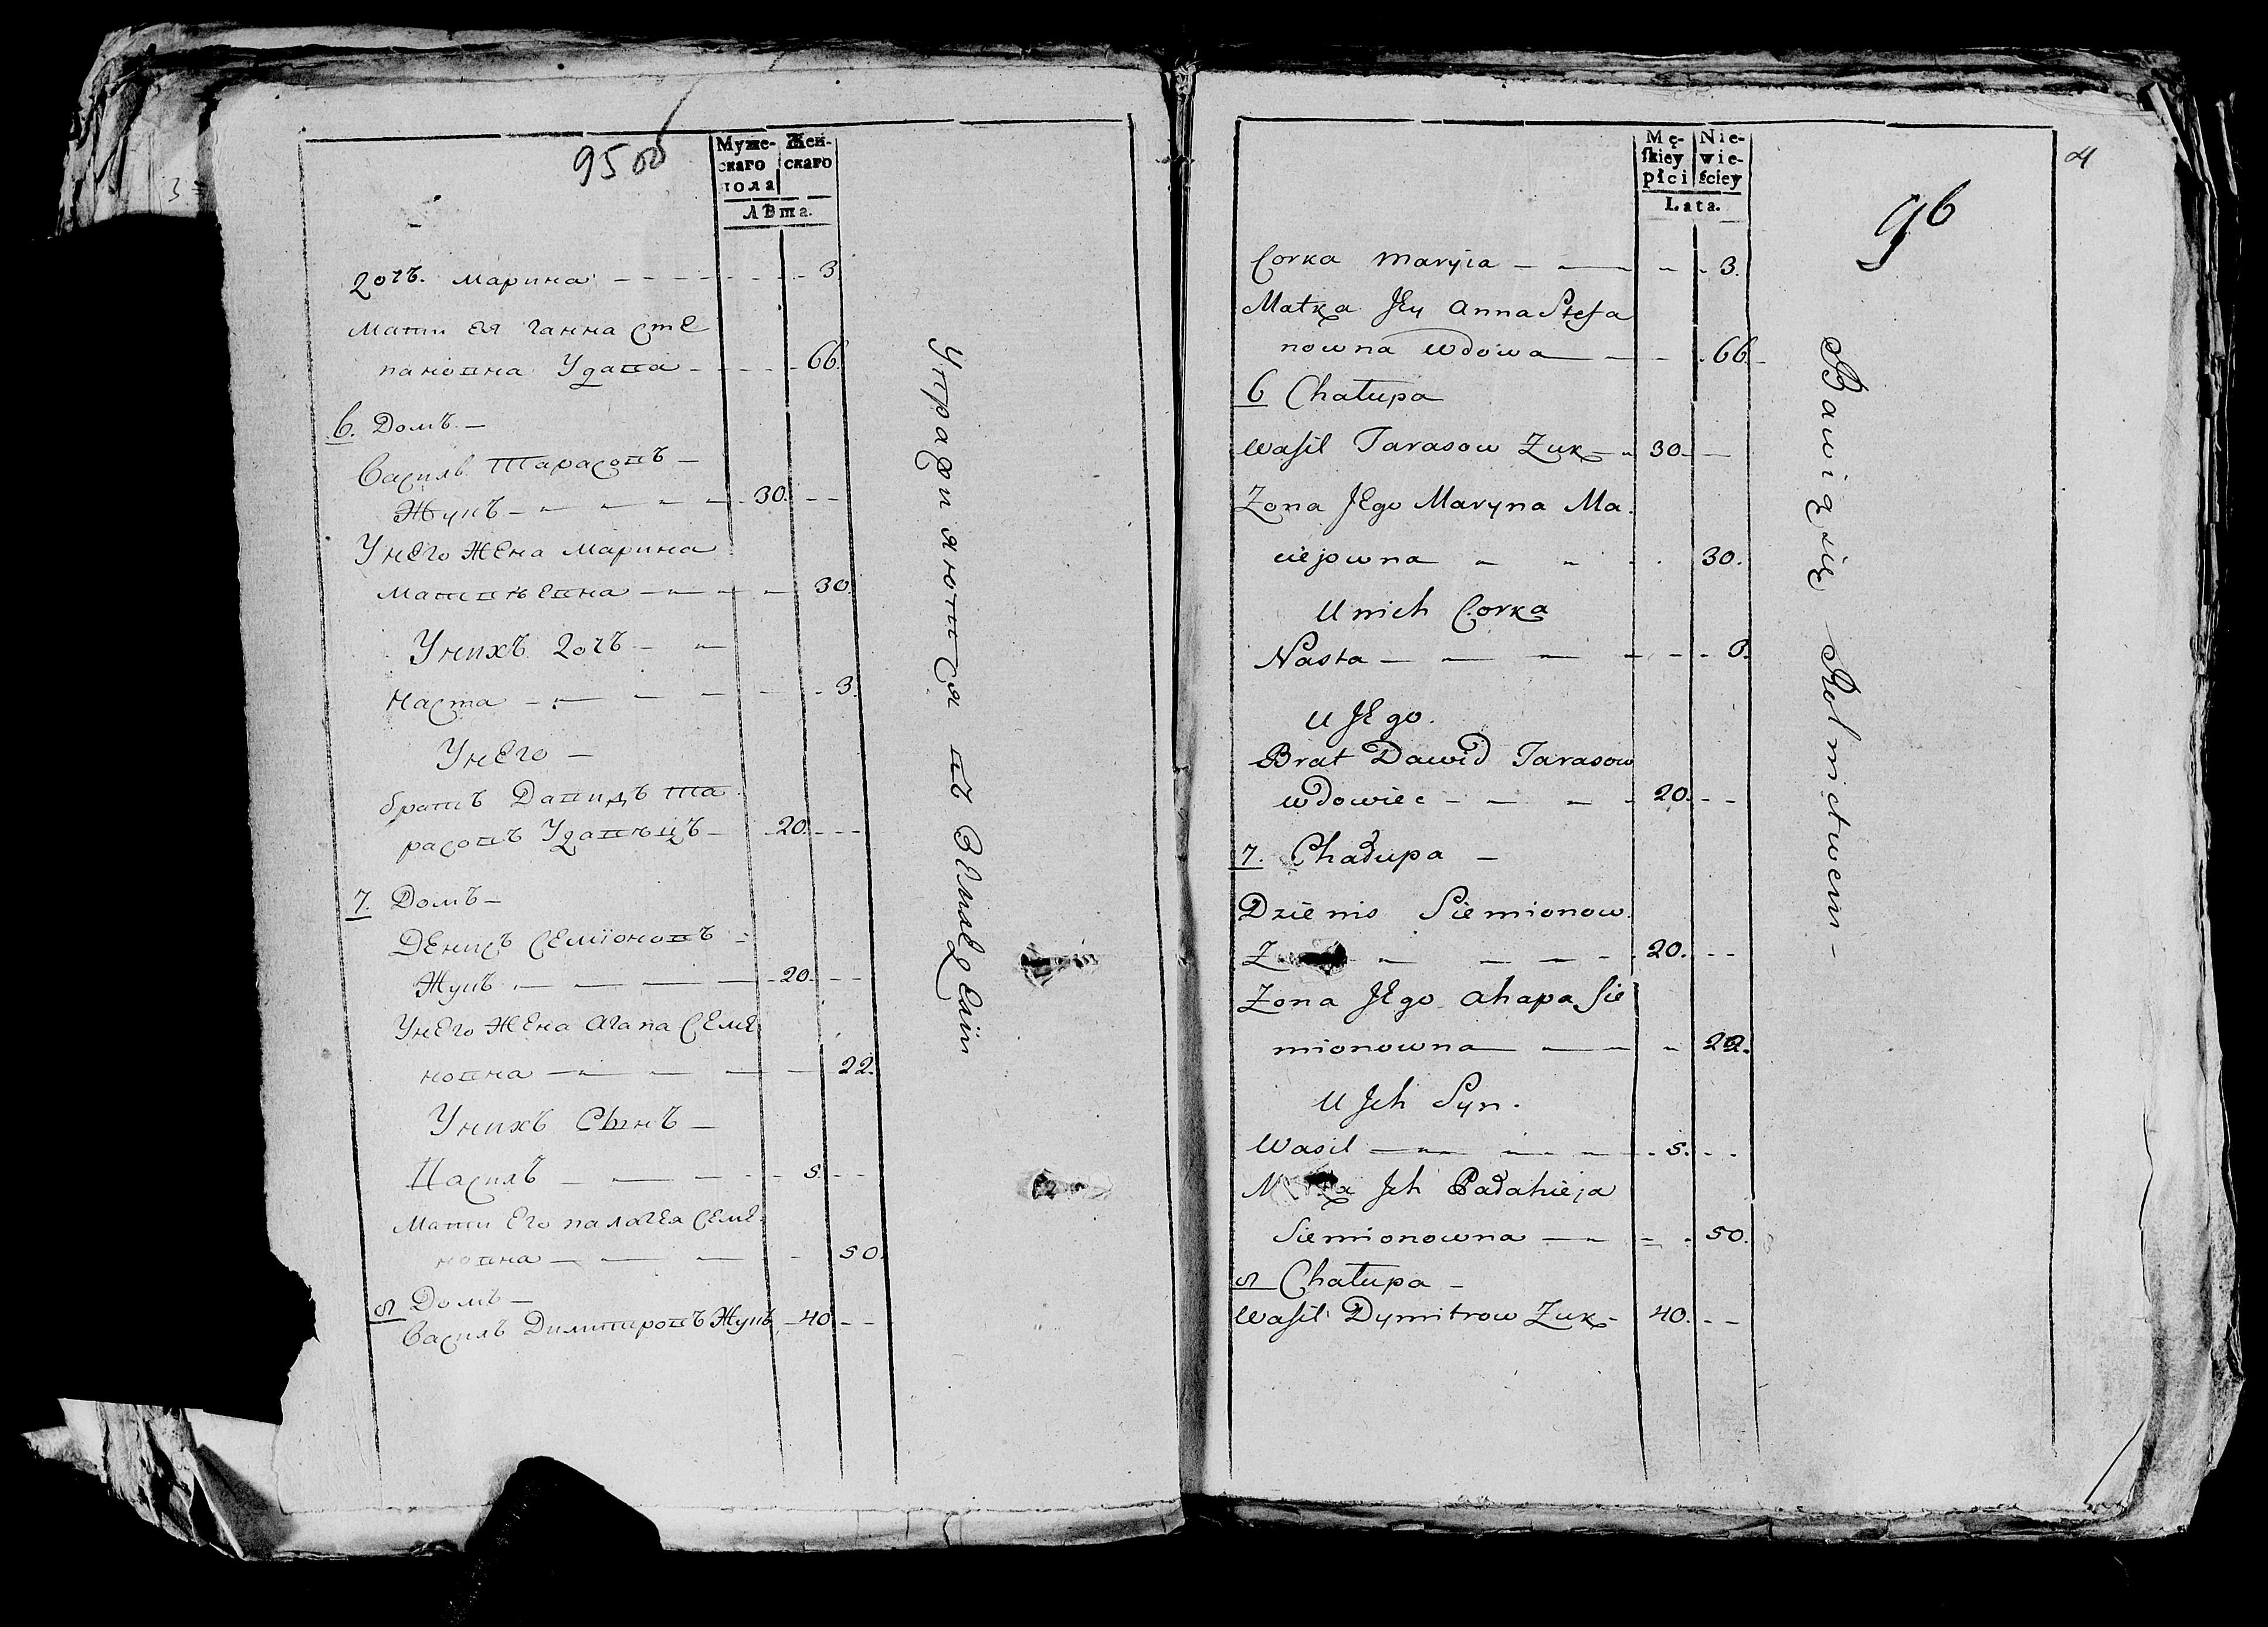 95 об
Муже-
скаго
пола
Жен-
скаго
Лѣта.
дочъ. марина 3
мати ея ганна сте
пановна Удава 66.
6. Домъ
Василь Тарасовъ
Жукъ 30.
Унего жена марина
матвѣевна 30.
Унихъ дочъ
наста 3.
Унего
братъ Давидъ та
расовъ Удавѣцъ 20.
7. Домъ
Денисъ семіоновъ
Жукъ 20.
Унего жена агапа семе
новна 22.
Унихъ Сынъ
Василъ 5.
мати его палагея семе
новна 50.
8 Домъ
Василъ Димитровъ Жукъ 40
Упражняются въ
4
96
Mę-
ſkiey
płci
Nie-
wie-
ściey
Lata.
Corka maryia 3.
Matka Jey anna Stefa
nowna wdowa 66
6 Chałupa
Waſil Tarasow Zuk 30
Zona Jego Maryna Ma
ciejowna 30.
U nich Corka
Nasta 3.
U Jego.
Brat Dawid Tarasow
wdowiec 20.
7. Chałupa
Dzienis Siemionow
20.
Zona Jego ahapa Sie
mionowna 22.
U Jch Syn.
Wasil 5.
Jch Pałahieja
Siemionowna 50.
8 Chałupa
Waſil Dymitrow Zuk 40.
Bawią się Rolnictwem